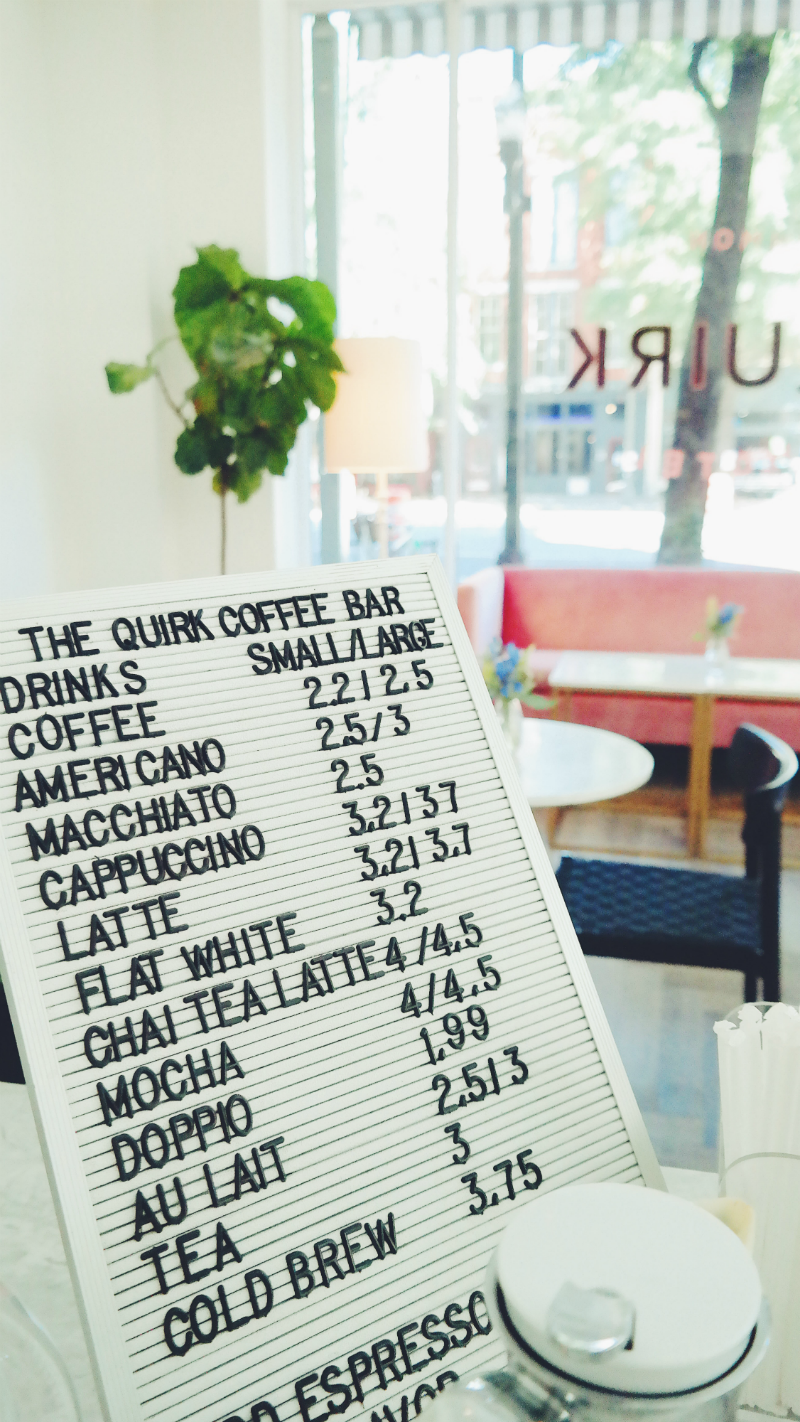 THE QUIRK COFFEE BAR
DRINKS SMALL/LARGE
COFFEE 2.2 | 2.5
AMERICANO 2.5/3
MACCHIATO 2.5
CAPPUCCINO 3.2 | 37
LATTE 3.2 | 3.7
FLAT WHITE 3.2
CHAI TEA LATTE 4/4.5
MOCHA 4/4.5
DOPPIO 1.99
AU LAIT 2.5 | 3
TEA 3
COLD BREW 3.75
ESPRESSO
UIRK